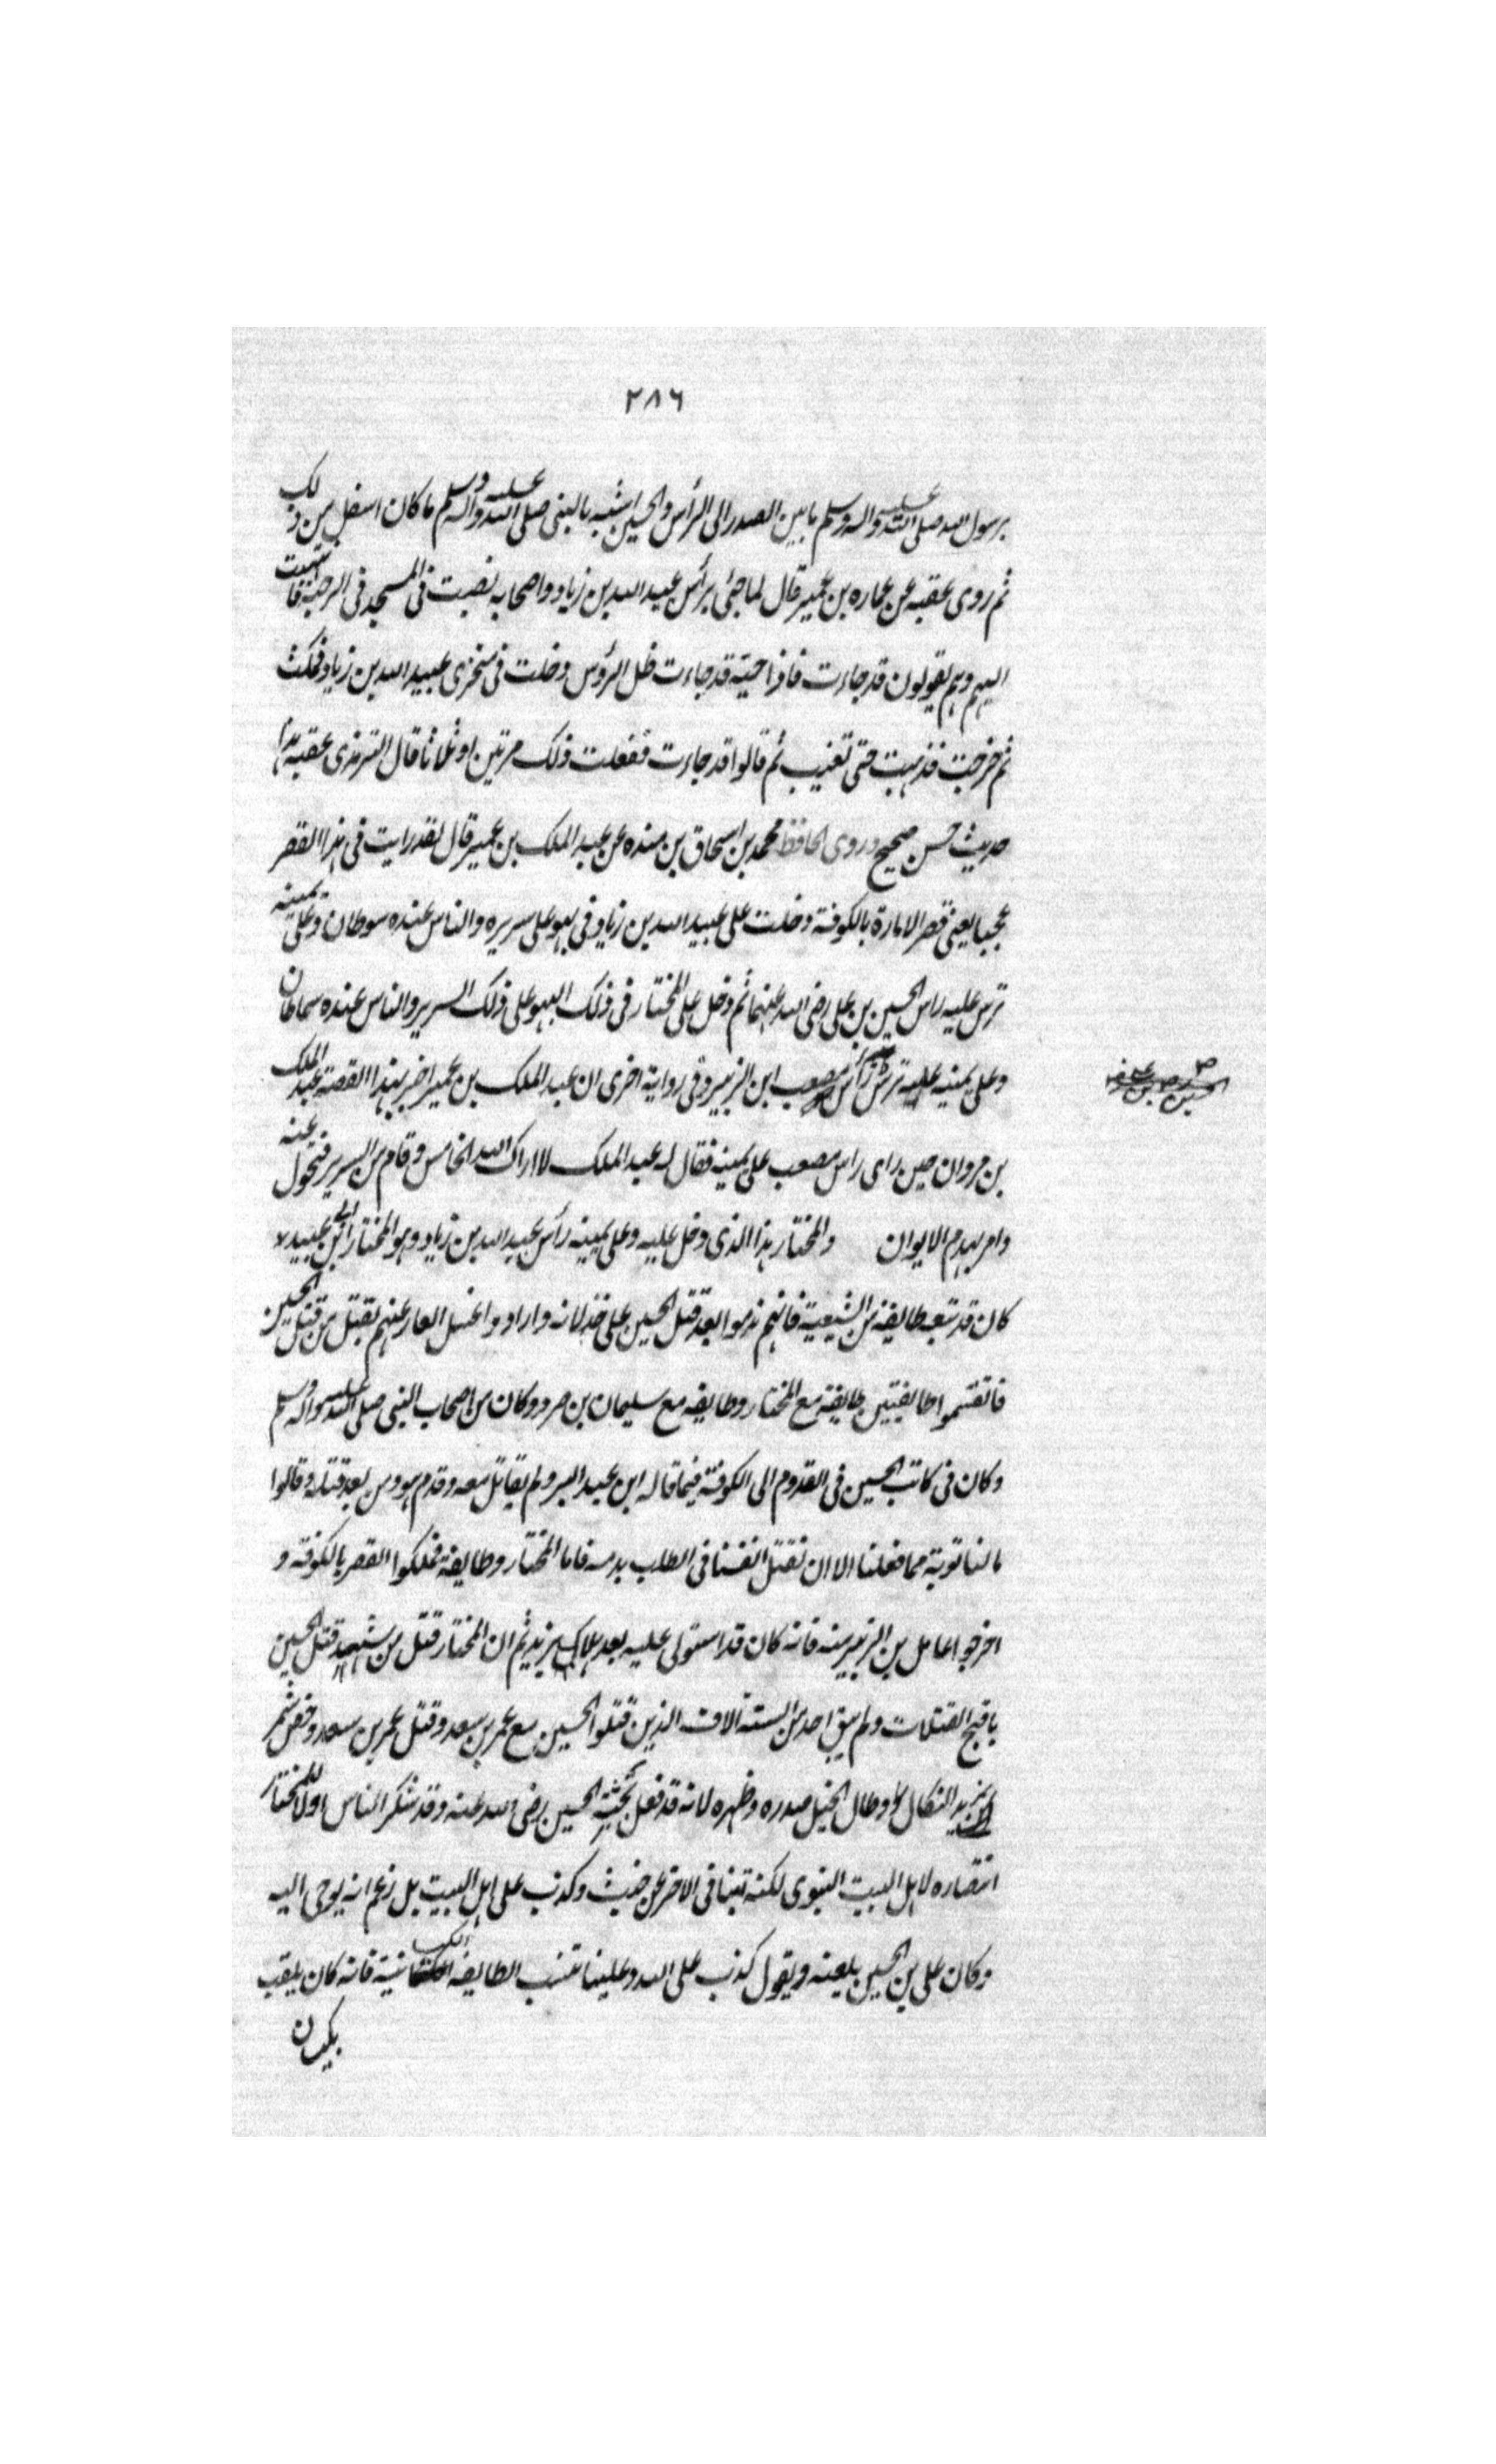 ٢٨٦
برسول الله صلى الله عليه واله وسلم ما بين الصدر الى الرأس والحسين اشبه بالنبى صلى الله عليه واله وسلم ما كان اسفل من ذلك
ثم روى عقبه عن عماره بن عمير قال لما جئ برأس عبيد الله بن زياد واصحابه نصبت فى المسجد فى الرحبة فانتهيت
اليهم وهم يقولون قد جاءت فاذا حية قد جاءت خلل الرؤس دخلت فى منخرى عبيد الله بن زياد فمكث
ثم خرجت فذهبت حتى تغيب ثم قالوا قد جاءت ففعلت ذلك مرتين او ثلاثا قال الترمذى عقيبه هذا
حديث حسن صحيح وروى الحافظ محمد بن اسحاق بن منده عن عبد الملك بن عمير قال لقد رايت فى هذا القصر
عجبا يعنى قصر الامارة بالكوفة دخلت على عبيد الله بن زياد فى بهو على سريره والناس عنده سوطان وعلى يمينه
ترس عليه راس الحسين بن على رضى الله عنهما ثم دخل على المختار فى ذلك البهو على ذلك السرير والناس عنده سماطان
وعلى يمينه ترس عليه رأس مصعب ابن الزبير وفى رواية اخرى ان عبد الملك بن عمير اخبر بهذا القصة عبد الملك
بن مروان حين راى راس مصعب على يمينه فقال له عبد الملك لا اراك الله الخامس وقام من السرير فتحول عنه
وامر بهدم الايوان والمختار هذا الذى دخل عليه وعلى يمينه رأس عبيد الله بن زياد وهو المختار بن ابى عبيد
كان قد تبعه طايفة من الشيعية فانهم ندموا بعد قتل الحسين على خذلانه وارادوا غسل العار عنهم بقتل من قتل الحسين
فانقسموا طايفتين طايفة مع المختار وطايفه مع سليمان بن صرد وكان من اصحاب النبى صلى الله عليه واله وسلم
وكان فى كاتب الحسين فى القدوم الى الكوفة فيما قاله ابن عبد البر ولم يقاتل معه وقدم هو ومن بعد قتله وقالوا
ما لنا توبة مما فعلنا الا ان نقتل انفسنا فى الطلب بدمه فاما المختار وطايفة فملكوا القصر بالكوفه و
اخرجوا عامل بن الزبير منه فانه كان قد استولى عليه بعد هلاك يزيد ثم ان المختار قتل من شهد قتل الحسين
باقبح القتلات ولم يبق احد من الستة آلاف الذين قتلوا الحسين مع عمر بن سعد وقتل عمر بن سعد وخص شمر
بمزيد النكال واوطال الخيل صدره وظهره لانه قد فعل بجثة الحسين رضى الله عنه وقد شكر الناس اولا للمختار
انتصاره لاهل البيت النبوى لكنه تبنا فى الاخر عن خبث وكذب على اهل البيت بل زعم انه يوحى اليه
وكان على بن الحسين يلعنه ويقول كذب على الله وعلينا تنسب الطايفه الكيسانية فانه كان يلقب
بكيسان